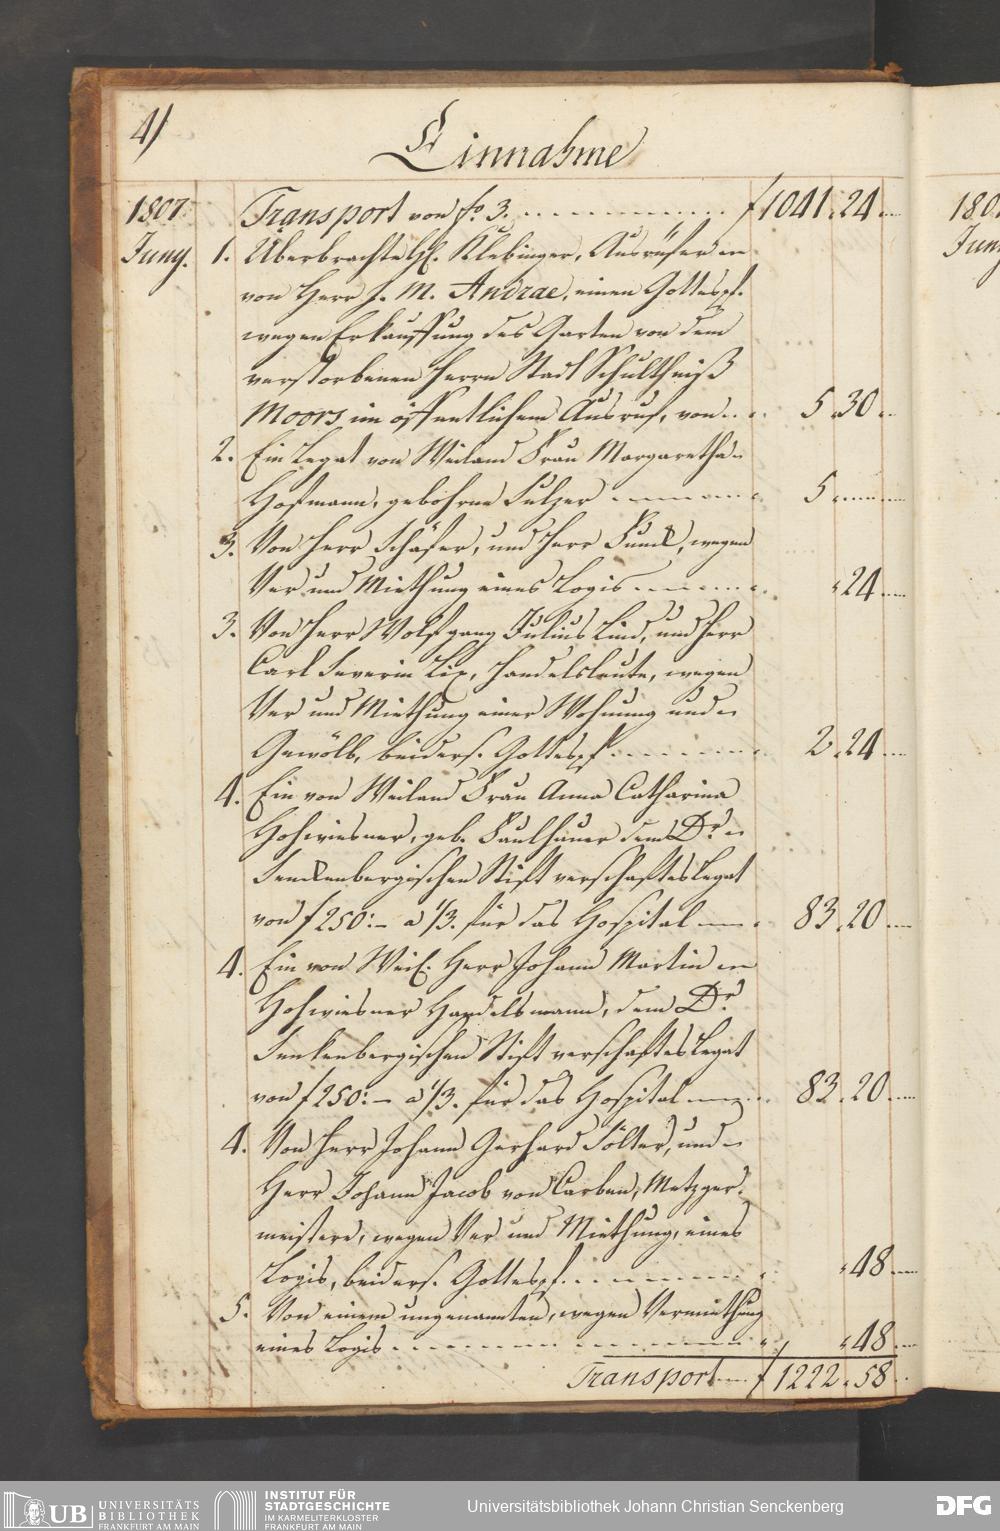 4/
Einnahme
1807. Transport von fo 3. f 1041. 24
Juny. 1. Überbrachte H. Klebinger, Ausrüfer
von Herr J. M. Andreae, einen Gottespf.
wegen Erkauffung des Garten von dem
verstorbenen Herrn Stadt Schultheiß
Moors im öffentlichem Ausruf, von 5. 30
2. Ein Legat von Weiland Frau Margaretha
Hofmann, gebohrne Sulzer 5
3. Von Herr Schäfer, und Herr Funck, wegen
Ver und Miethung eines Logis " 24
3. Von Herr Wolfgang Julius Lind, und Herr
Carl Severin Lix, Handelsleute, wegen
Ver und Miethung einer Wohnung und
Gewölb, beiders. Gottespf 2. 24
4. Ein von Weiland Frau Anna Catharina
Hohwiesner, geb. Faulhauer dem Dr.
Senckenbergischen Stift verschaftes Legat
von f 250:- a 1/3. für das Hospital 83. 20
4. Ein von Weil. Herr Johann Martin
Hohwiesner Handelsmann, dem Dr.
Senkenbergischen Stift verschaftes Legat
von f 250:- a 1/3. für das Hospital 83. 20
4. Von Herr Johann Gerhard Sölter, und
Herr Johann Jacob von Carben, Metzger-
meistere, wegen Ver und Miethung, eines
Logis, beiders. Gottespf. " 48
5. Von einem ungenannten, wegen Vermiethung
eines Logis " 48
Transport f 1222. 58
180
Juny
UB UNIVERSITÄTS
BIBLIOTHEK
FRANKFURT AM MAIN
INSTITUT FÜR
STADTGESCHICHTE
IM KARMELITERKLOSTER
FRANKFURT AM MAIN
Universitätsbibliothek Johann Christian Senckenberg
DFG